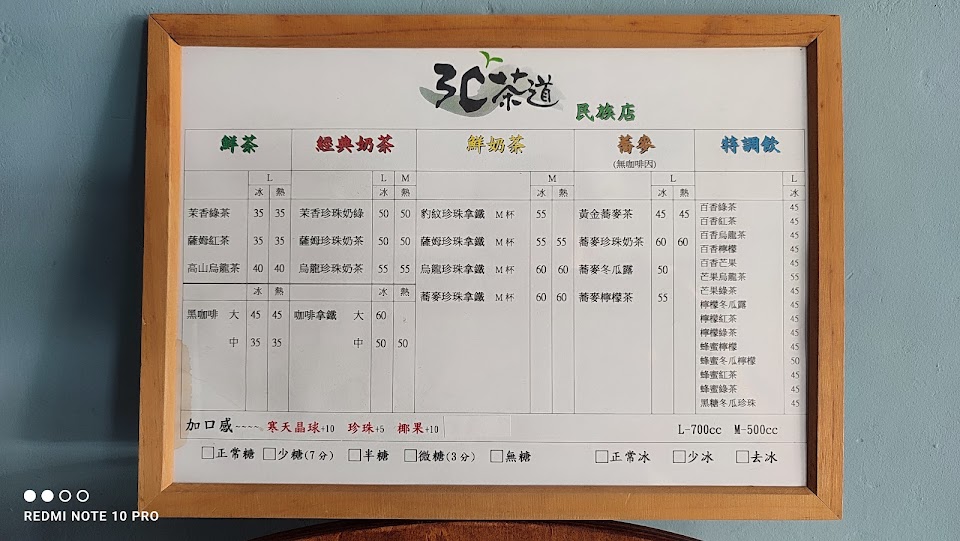 3C茶道 民族店
鮮茶 經典奶茶 鮮奶茶 蕎麥 特調飲
(無咖啡因)
L L M M L L
冰 熱 冰 熱 冰 熱 冰 熱 冰
茉香綠茶 35 35
薩姆紅茶 35 35
高山烏龍茶 40 40
冰 熱
黑咖啡 大 45 45
中 35 35
茉香珍珠奶綠 50 50
薩姆珍珠奶茶 50 50
烏龍珍珠奶茶 55 55
冰 熱
咖啡拿鐵 大 60
中 50 50
豹紋珍珠拿鐵 M杯 55
薩姆珍珠拿鐵 M杯 55 55
烏龍珍珠拿鐵 M杯 60 60
蕎麥珍珠拿鐵 M杯 60 60
黃金蕎麥茶 45 45
蕎麥珍珠奶茶 60 60
蕎麥冬瓜露 50
蕎麥檸檬茶 55
百香綠茶 45
百香紅茶 45
百香烏龍茶 45
百香檸檬 45
百香芒果 45
芒果烏龍茶 55
芒果綠茶 45
檸檬冬瓜露 45
檸檬紅茶 45
檸檬綠茶 45
蜂蜜檸檬 45
蜂蜜冬瓜檸檬 50
蜂蜜紅茶 45
蜂蜜綠茶 45
黑糖冬瓜珍珠 45
加口感~~~~ 寒天晶球+10 珍珠+5 椰果+10 L-700cc M-500cc
□正常糖 □少糖(7分) □半糖 □微糖(3分) □無糖 □正常冰 □少冰 □去冰
REDMI NOTE 10 PRO